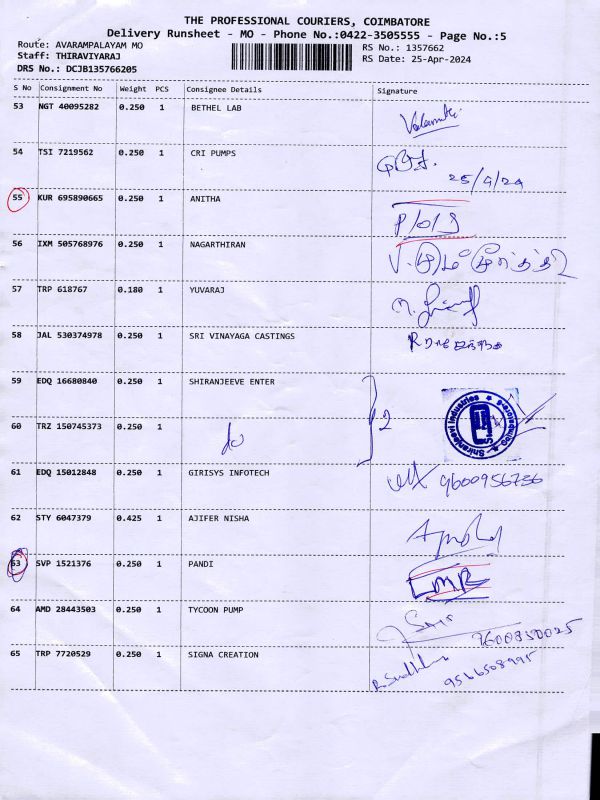 THE PROFESSIONAL COURIERS, COIMBATORE
Delivery Runsheet - MO - Phone No.:0422-3505555 - Page No.:5
Route: AVARAMPALAYAM MO
RS No.: 1357662
Staff: THIRAVIYARAJ
RS Date: 25-Apr-2024
DRS No.: DCJB135766205
S No Consignment No Weight PCS Consignee Details Signature
53 NGT 40095282 0.250 1 BETHEL LAB
54 TSI 7219562 0.250 1 CRI PUMPS
25/4/24
55 KUR 695890665 0.250 1 ANITHA
56 IXM 505768976 0.250 1 NAGARTHIRAN
57 TRP 618767 0.180 1 YUVARAJ
58 JAL 530374978 0.250 1 SRI VINAYAGA CASTINGS
59 EDQ 16680840 0.250 1 SHIRANJEEVE ENTER
60 TRZ 150745373 0.250 1 do
2
61 EDQ 15012848 0.250 1 GIRISYS INFOTECH
9600956736
62 STY 6047379 0.425 1 AJIFER NISHA
63 SVP 1521376 0.250 1 PANDI
64 AMD 28443503 0.250 1 TYCOON PUMP
65 TRP 7720529 0.250 1 SIGNA CREATION